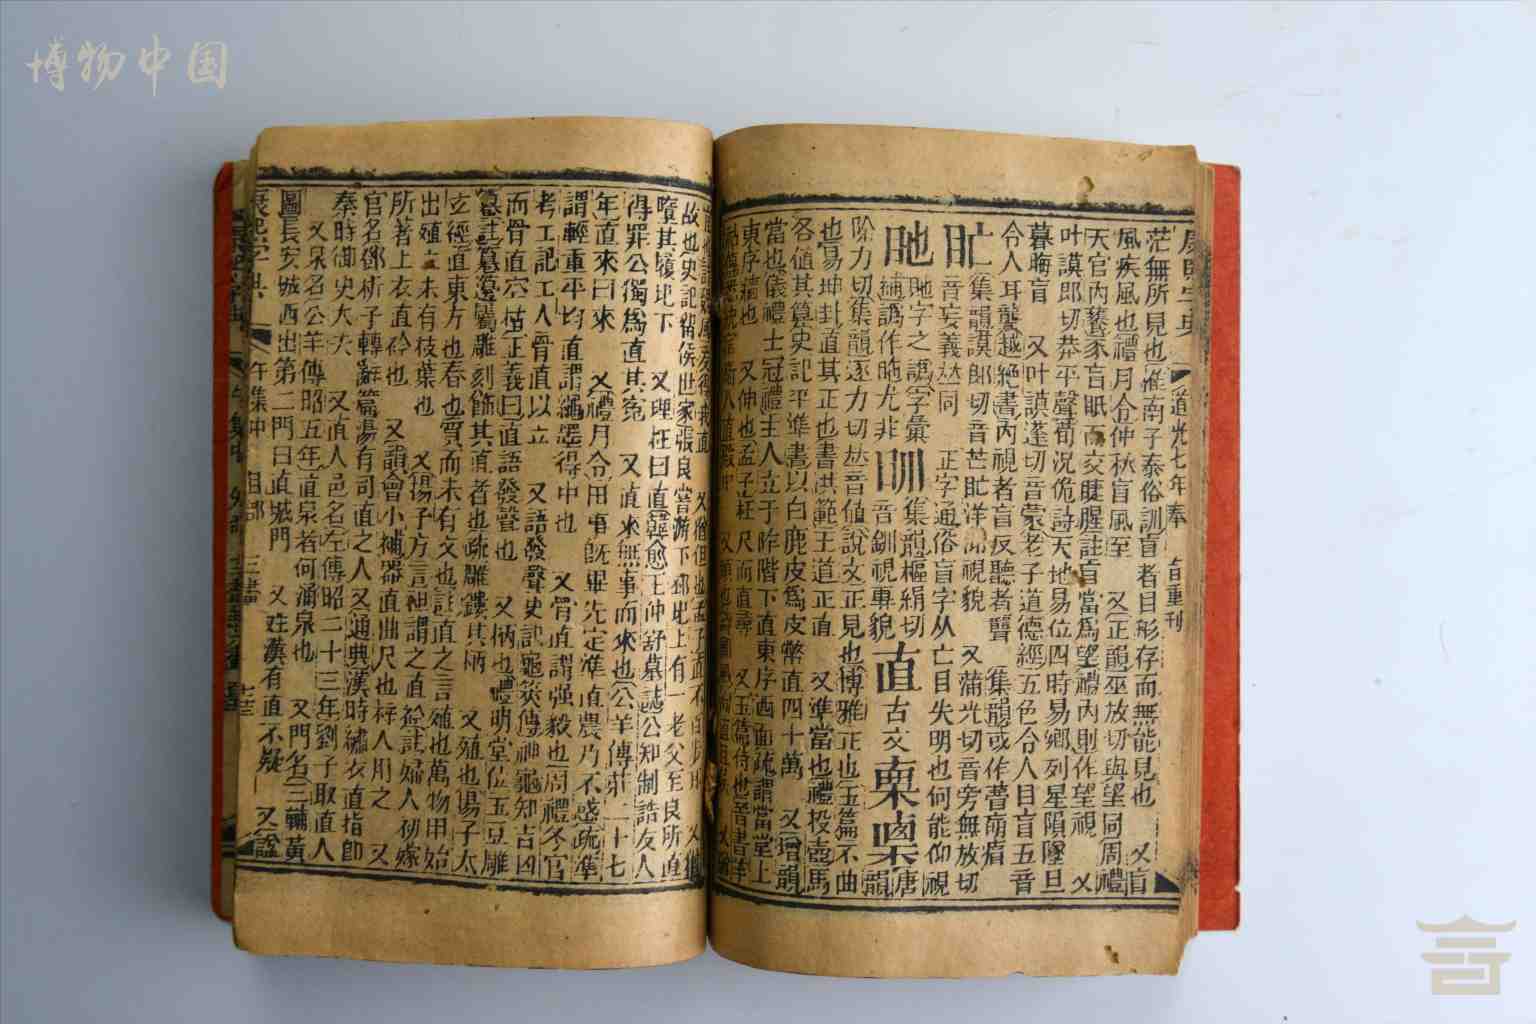 博物中国
康熙字典 道光七年奉 旨重刊
茫無所見也淮南子泰俗訓盲者目形存而無能見也 又盲
風疾風也禮月令仲秋盲風至 又正韻巫放切與望同周禮
天官內饔豕盲眂而交睫腥註盲當爲望禮內則作望視 又
叶謨郎切恭平聲荀況佹詩天地易位四時易鄉列星隕墜旦
暮晦盲 又叶謨蓬切音蒙老子道德經五色令人目盲五音
令人耳聾越絕書內視者盲反聽者聾 集韻或作瞢
𥃯集韻謨郎切音芒𥃯洋 視貌 又蒲光切音旁無放切
音妄義𠀤同 正字通俗盲字从亡目失明也何能仰視
字之譌字彙 集韻樞絹切
補譌作 尤非 音釧視專貌 直古文 唐韻
除力切集韻逐力切𠀤音値說文正見也博雅正也玉篇不曲
也易坤卦直其正也書洪範王道正直 又準當也禮投壺馬
各値其算史記平準書以白鹿皮爲皮幣直四十萬 又增韻
當也儀禮士冠禮主人立于阼階下直東序西面疏謂當堂上
東序牆也 又伸也孟子枉尺而直尋 又玉篇侍也晉書羊
故也史記留侯世家張良嘗游下邳圯上有一老父至良所直
墮其履圯下 又理枉曰直韓愈王仲舒墓誌公知制誥友人
得罪公獨爲直其寃 又直來無事而來也公羊傳莊二十七
年直來曰來 又禮月令田事旣畢先定準直農乃不惑疏準
謂輕重平均直謂繩墨得中也 又骨直謂强毅也周禮冬官
考工記工人骨直以立 又語發聲史記龜筴傳神龜知吉凶
而骨直空枯正義曰直語發聲也 又柄也禮明堂位玉豆雕
篹註篹籩屬雕刻飾其直者也疏雕鏤其柄 又殖也揚子太
玄經直東方也春也質而未有文也註直之言殖也萬物甲始
出殖立未有枝葉也 又揚子方言袒謂之直袊註婦人初嫁
所著上衣直袊也 又韻會小補器直曲尺也梓人用之 又
官名鄧析子轉辭篇湯有司直之人又通典漢時繡衣直指卽
秦時御史大夫 又直人邑名左傳昭二十三年劉子取直人
又泉名公羊傳昭五年直泉者何涌泉也 又門名三輔黃
圖長安城西出第二門曰直城門 又姓漢有直不疑 又諡
康熙字典 午集中 目部 三畫